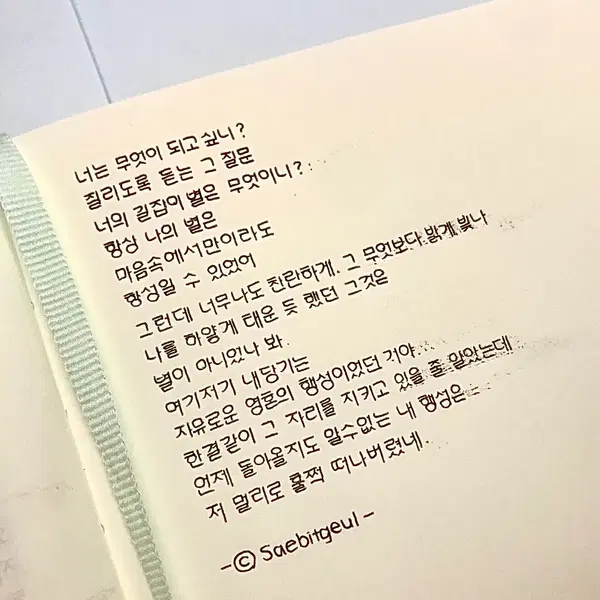 너는 무엇이 되고 싶니?
질리도록 듣는 그 질문
너의 길잡이 별은 무엇이니?
항상 나의 별은
마음속에서만이라도
항성일 수 있었어
그런데 너무나도 찬란하게. 그 무엇보다 밝게 빛나
나를 하얗게 태운 듯 했던 그것은
별이 아니었나 봐.
여기저기 내당기는
자유로운 영혼의 행성이었던 거야.
한결같이 그 자리를 지키고 있을 줄 알았는데
언제 돌아올지도 알수없는 내 행성은
저 멀리로 훌쩍 떠나버렸네.
-© Saebitgeul-